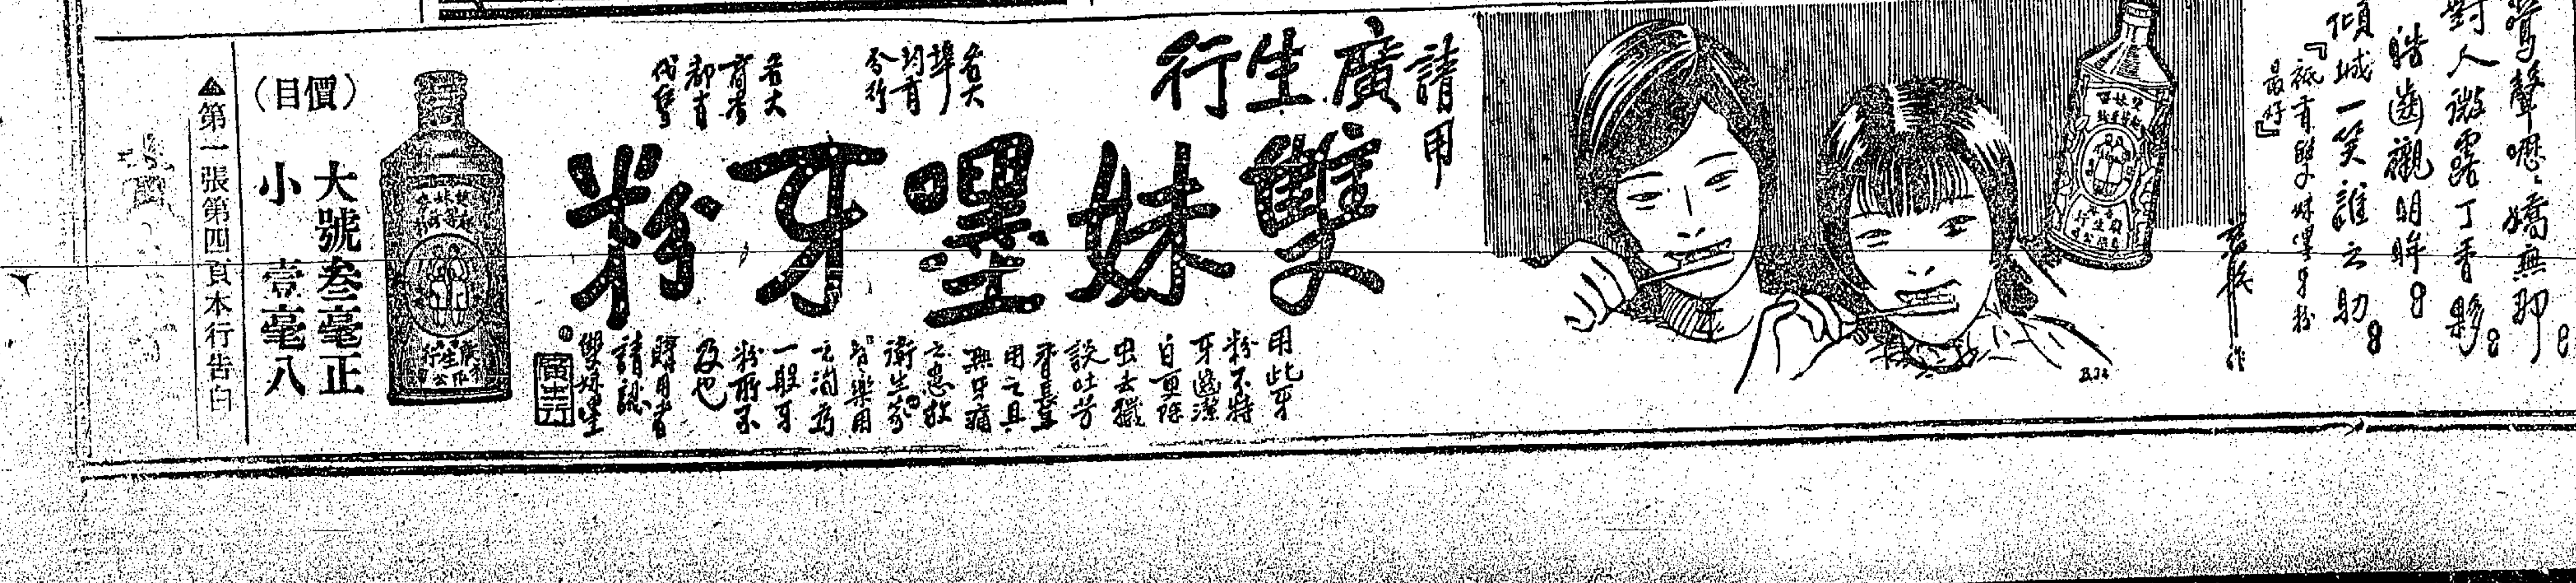 鶯聲嚦嚦嬌無那
對人微露丁香顆
皓齒襯明眸
傾城一笑誰云助
『祇有雙妹嚜牙粉
最好』
請用
廣生行
雙妹嚜牙粉
各大
埠
均有
分行
各大
商店
都有
代售
用此牙
粉不特
牙齒潔
白更除
虫去穢
談吐芳
香長
用之且
無牙痛
之患故
衛生家
皆樂用
之洵為
一般牙
粉所不
及也
購用者
請認
雙妹嚜
廣生行
（價目）
大號叁毫正
小 壹毫八
▲第一張第四頁本行告白